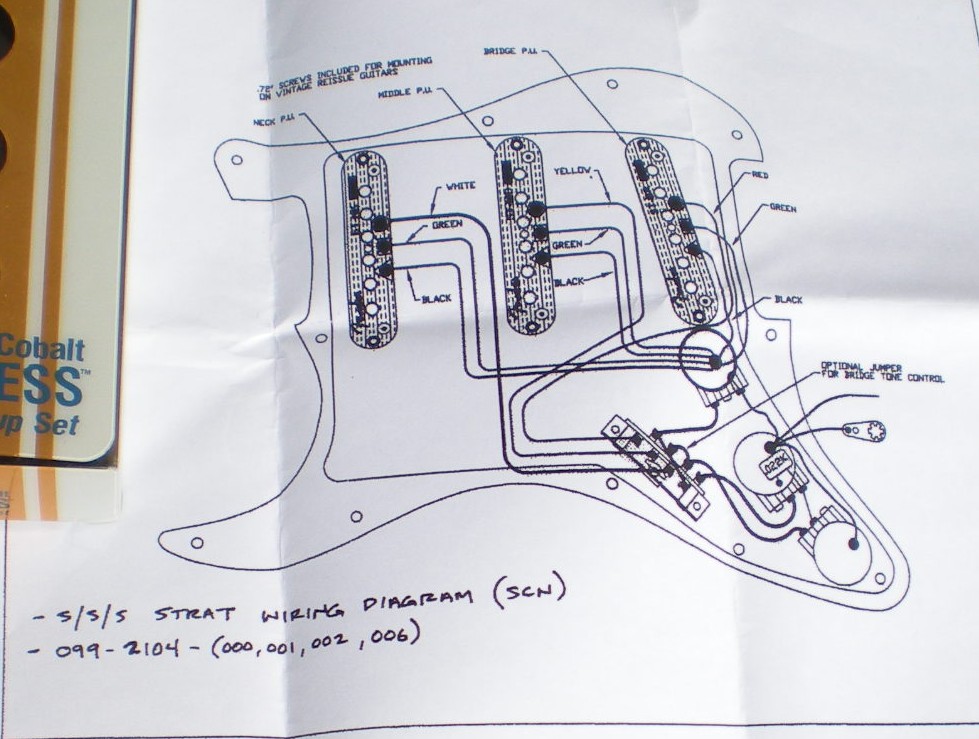 BRIDGE P.U.
.72" SCREWS INCLUDED FOR MOUNTING
ON VINTAGE REISSUE GUITARS
MIDDLE P.U.
NECK P.U.
YELLOW
RED
WHITE
GREEN
GREEN
GREEN
BLACK
BLACK
BLACK
OPTIONAL JUMPER
FOR BRIDGE TONE CONTROL
.022K
Cobalt
ESS™
up Set
- S/S/S STRAT WIRING DIAGRAM (SCN)
- 099-2104-(000,001,002,006)